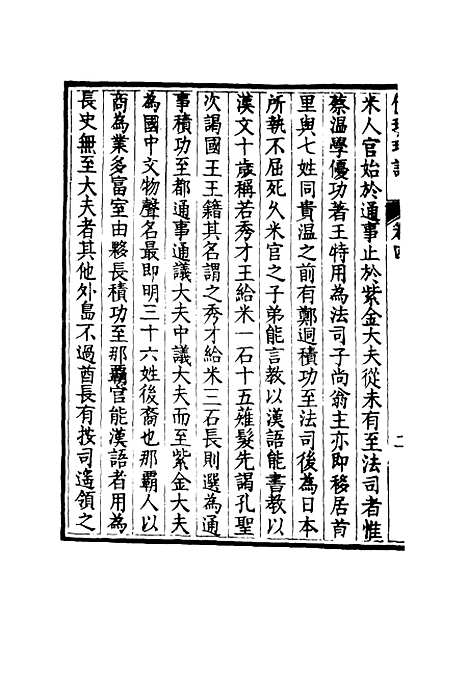 卷四
二
米人官始於通事止於紫金大夫從未有至法司者惟
蔡温學優功著王特用為法司子尚翁主亦即移居首
里與七姓同貴温之前有鄭迵積功至法司後為日本
所執不屈死久米官之子弟能言教以漢語能書教以
漢文十歲稱若秀才王給米一石十五薙髮先謁孔聖
次謁國王王籍其名謂之秀才給米三石長則選為通
事積功至都通事通議大夫中議大夫而至紫金大夫
為國中文物聲名最即明三十六姓後裔也那霸人以
商為業多富室由夥長積功至那霸官能漢語者用為
長史無至大夫者其他外島不過酋長有按司遙領之